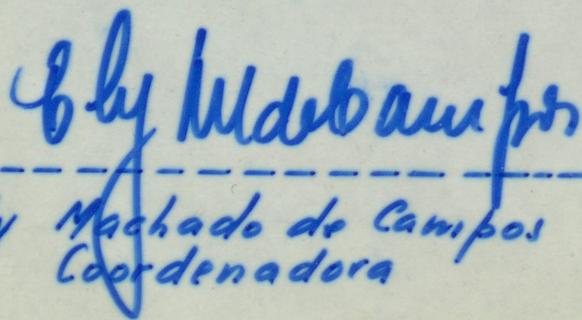 Ely MdeCampos
y Machado de Campos
Coordenadora